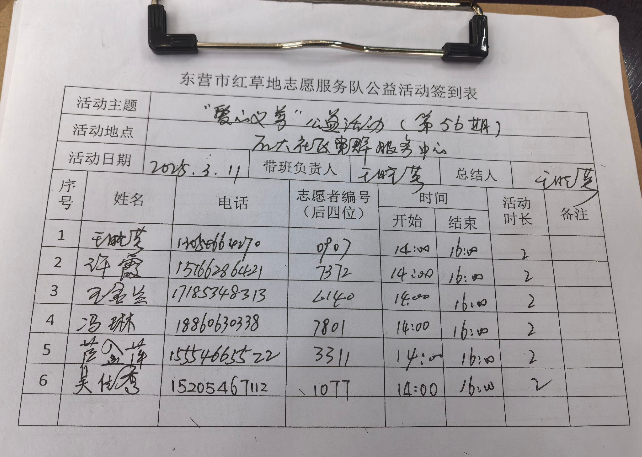 东营市红草地志愿服务队公益活动签到表
活动主题 “爱心义剪”公益活动（第56期）
活动地点 石大社区党群服务中心
活动日期 2025.3.11 带班负责人 总结人
序号 姓名 电话 志愿者编号（后四位） 时间 开始 结束 活动时长 备注
1 0907 14:00 16:00 2
2 许霞 15766286421 7372 14:00 16:00 2
3 17185348313 6140 14:00 16:00 2
4 冯琳 18860630338 7801 14:00 16:00 2
5 15554665522 3311 14:00 16:00 2
6 15205467112 1077 14:00 16:00 2